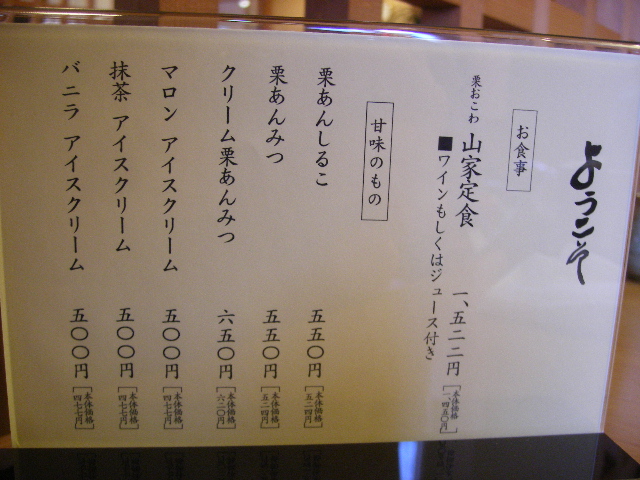 ようこそ
お食事
栗おこわ 山家定食 一、五二二円 [本体価格 一、四五〇円]
■ワインもしくはジュース付き
甘味のもの
栗あんしるこ 五五〇円 [本体価格 五二四円]
栗あんみつ 五五〇円 [本体価格 五二四円]
クリーム栗あんみつ 六五〇円 [本体価格 六二〇円]
マロン アイスクリーム 五〇〇円 [本体価格 四七七円]
抹茶 アイスクリーム 五〇〇円 [本体価格 四七七円]
バニラ アイスクリーム 五〇〇円 [本体価格 四七七円]